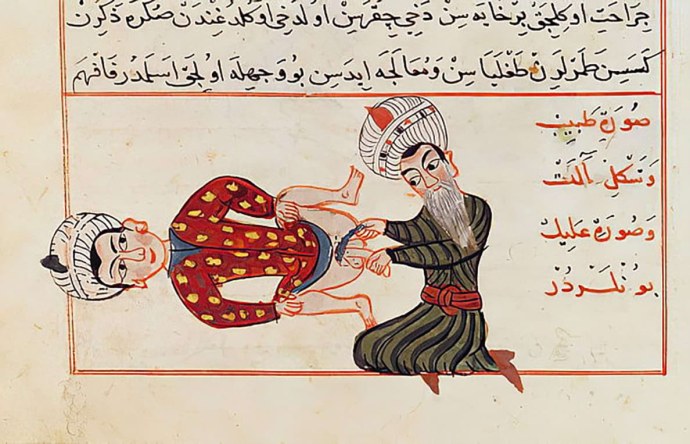 جراحت اوكلجق برخايه سن دخي چقرسن اول دخي اوكلدغندن صكره ذكرن
كسسن طمرلرن طغلياسن ومعالجه ايدسن بو وجهله اولجق اسلمدر فافهم
صورة طبيب
وشكل آلت
وصورة عليل
بونلردر